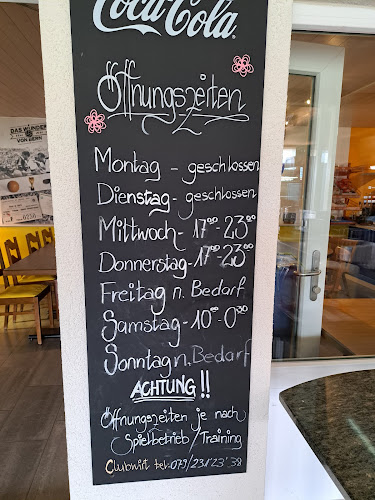 Coca-Cola
Öffnungszeiten
Montag - geschlossen
Dienstag - geschlossen
Mittwoch - 17⁰⁰ - 23⁰⁰
Donnerstag - 17⁰⁰ - 23⁰⁰
Freitag n. Bedarf
Samstag - 10⁰⁰ - 0³⁰
Sonntag n. Bedarf
ACHTUNG !!
Öffnungszeiten je nach
Spielbetrieb / Training
Clubwirt tel. 079/231'23'38
DAS WUNDER
VON BERN